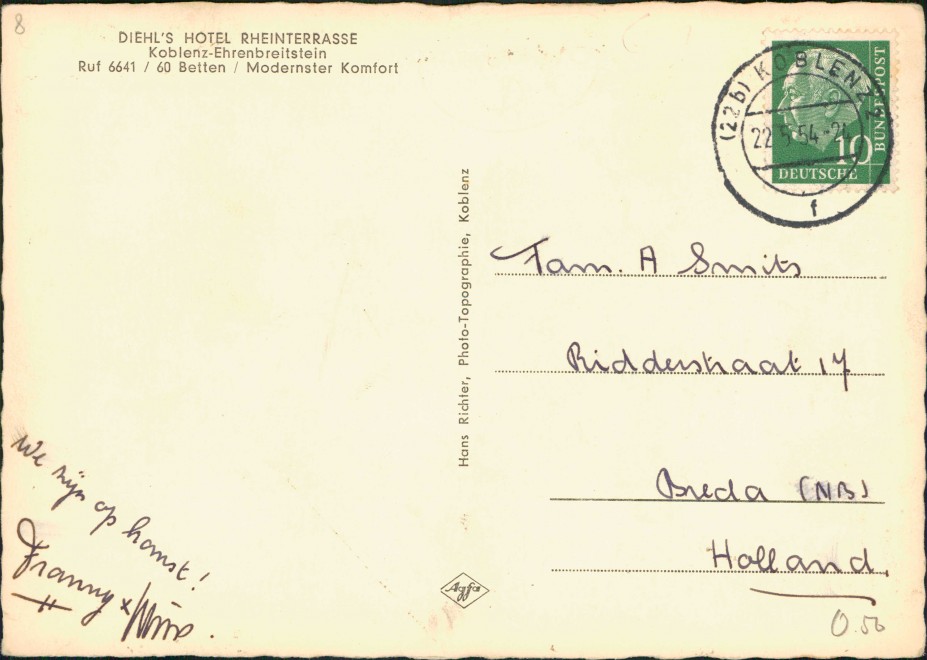 8
DIEHL'S HOTEL RHEINTERRASSE
Koblenz-Ehrenbreitstein
Ruf 6641 / 60 Betten / Modernster Komfort
Hans Richter, Photo-Topographie, Koblenz
(22b) KOBLENZ 2
22.5.54-24
f
10
DEUTSCHE
BUNDESPOST
Fam. A Smits
Ridderstraat 17
Breda (NB)
Holland.
We zijn op komst!
Franny
Agfa
0.50